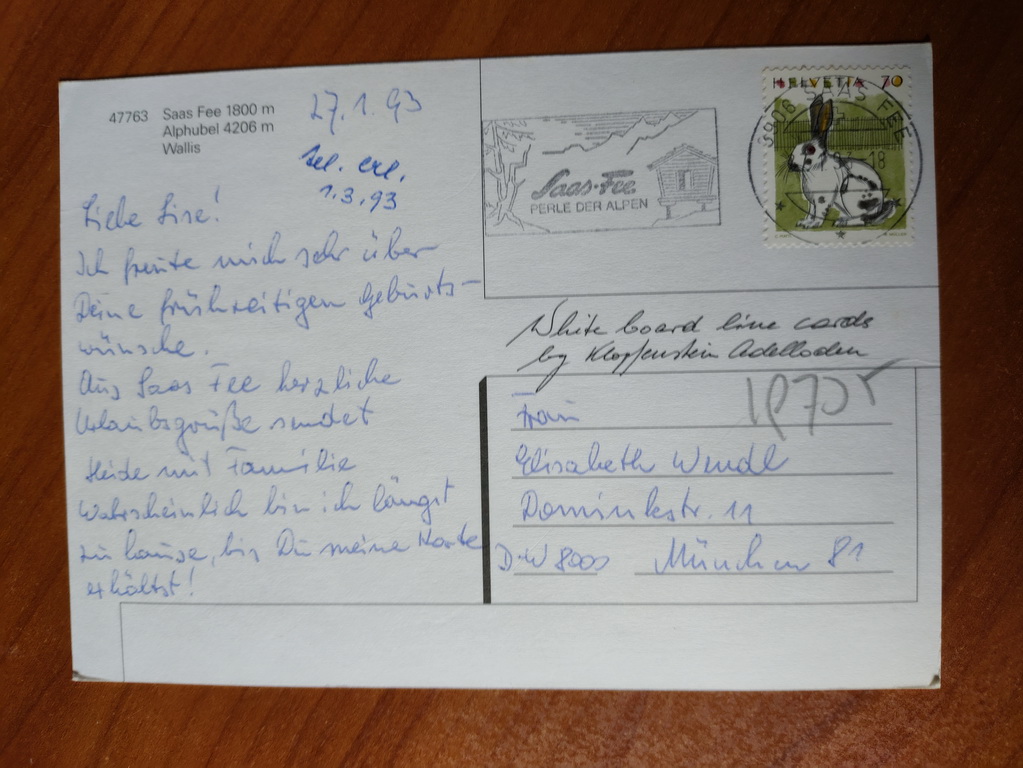 47763 Saas Fee 1800 m
Alphubel 4206 m
Wallis
27.1.93
tel. erl.
1.3.93
Liebe Lise!
Ich freute mich sehr über
Deine frühzeitigen Geburts-
wünsche.
Aus Saas Fee herzliche
Urlaubsgrüße sendet
Heide mit Familie
Wahrscheinlich bin ich längst
zu hause, bis Du meine Karte
erhältst!
Saas-Fee
PERLE DER ALPEN
HELVETIA 70
3906 SAAS FEE
18
White board line cards
by Klopfenstein Adelboden
Frau
Elisabeth Wendl
Dominikstr. 11
D-W 8000 München 81